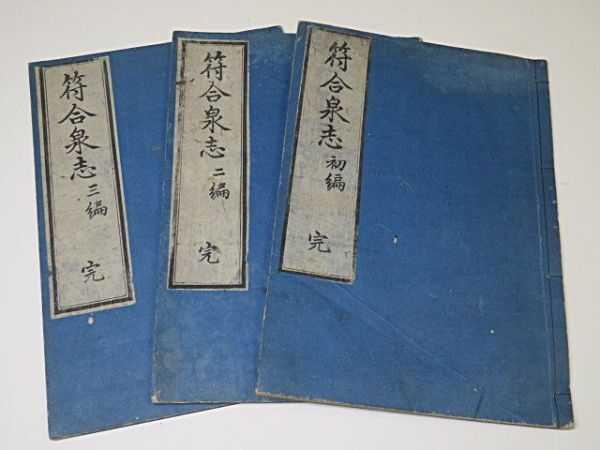 符合泉志 初編 完
符合泉志 二編 完
符合泉志 三編 完